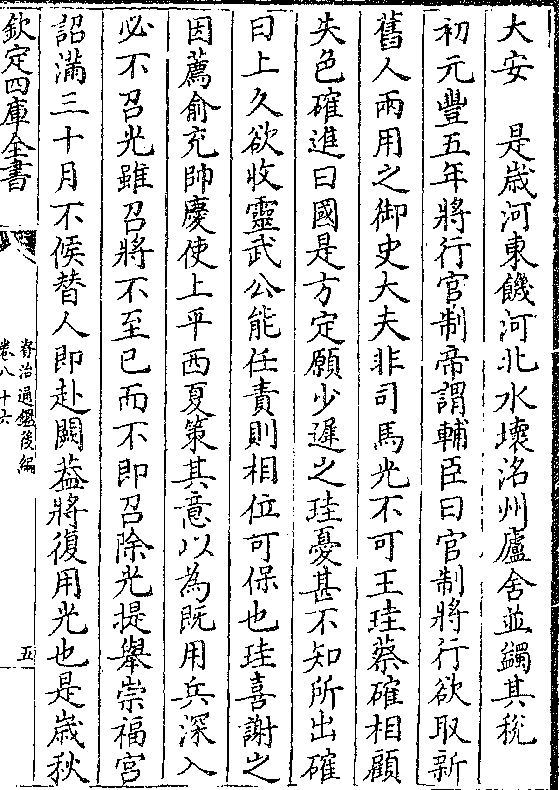 大安　是歳河東饑河北水壞洺州廬舍並蠲其稅
初元豐五年將行官制帝謂輔臣曰官制將行欲取新
舊人兩用之御史大夫非司馬光不可王珪蔡確相顧
失色確進曰國是方定願少遲之珪憂甚不知所出確
曰上久欲收靈武公能任責則相位可保也珪喜謝之
因薦俞充帥慶使上平西夏策其意以為既用兵深入
必不召光雖召將不至已而不即召除光提舉崇福宮
詔滿三十月不候替人即赴闕葢將復用光也是歳秋
欽定四庫全書
資治通鑑後編
卷八十六
五